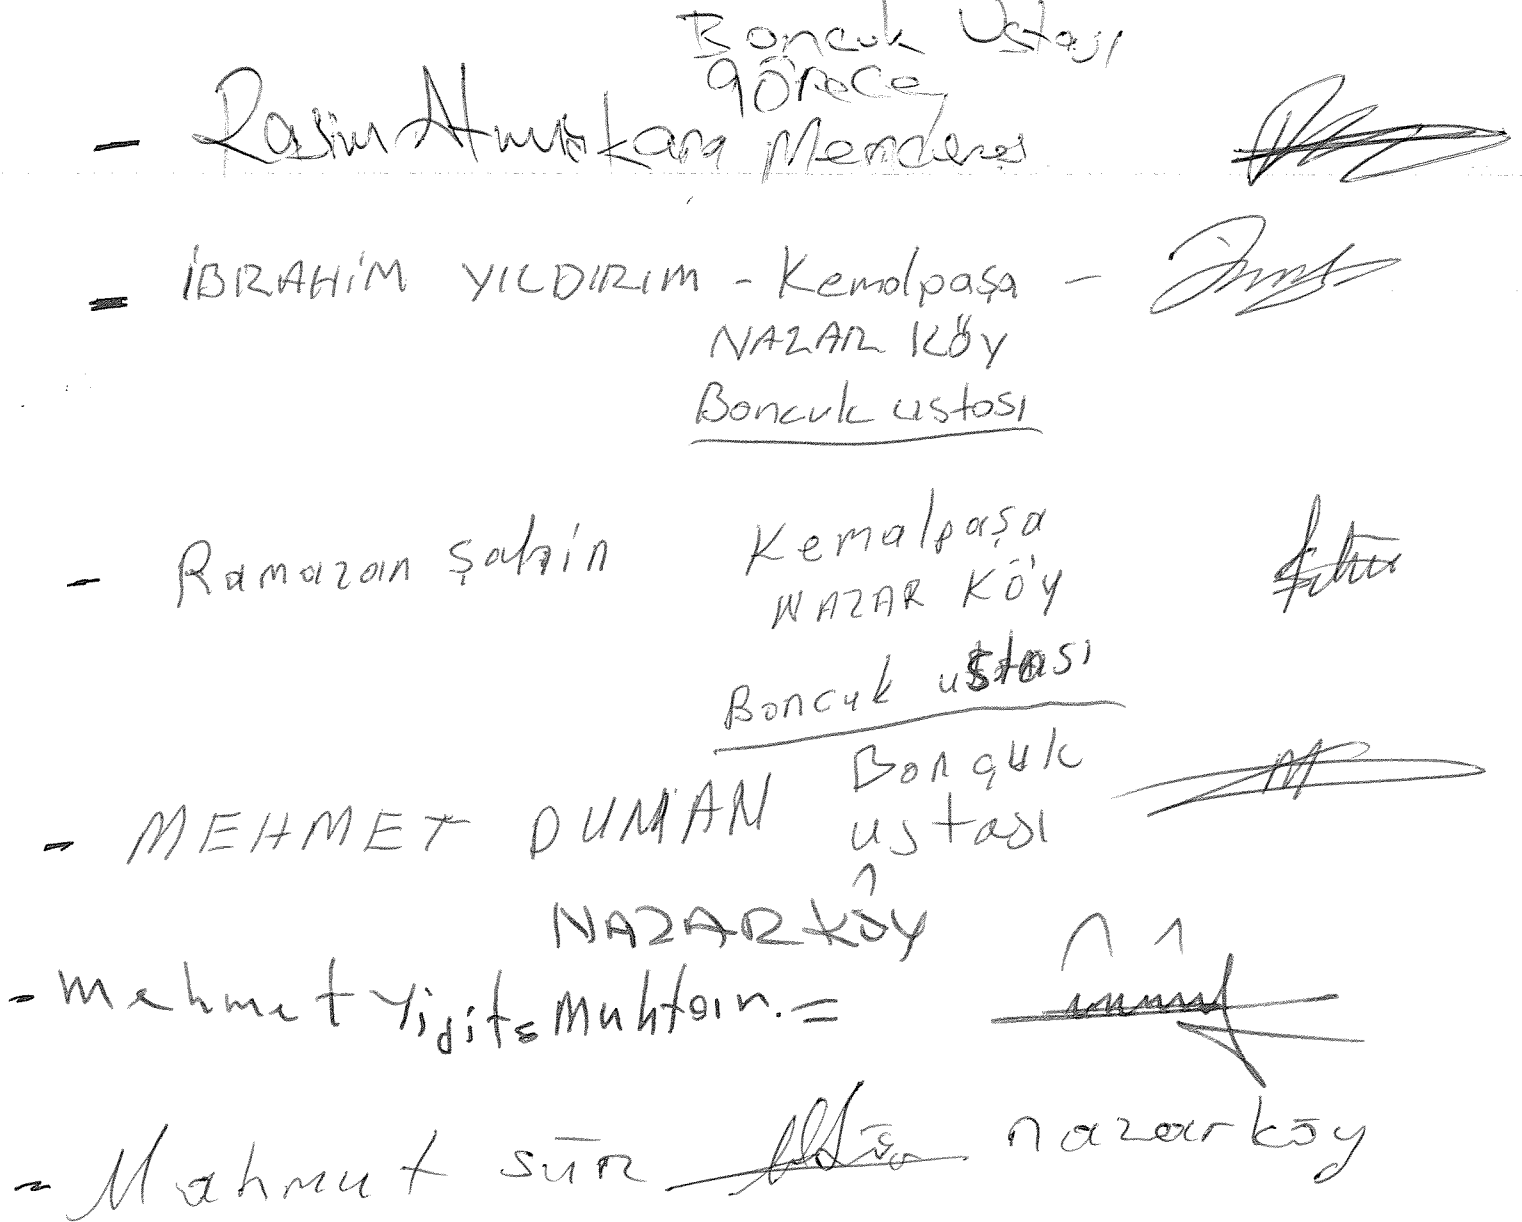 Boncuk Ustası
Görece
- Rasim Menderes
= İBRAHİM YILDIRIM - Kemalpaşa -
NAZAR KÖY
Boncuk ustası
- Ramazan Şahin Kemalpaşa
NAZAR KÖY
Boncuk ustası
- MEHMET DUMAN Bonçuk
ustası
NAZARKÖY
- Mehmet Yiğit
- Mahmut SÜR nazarköy